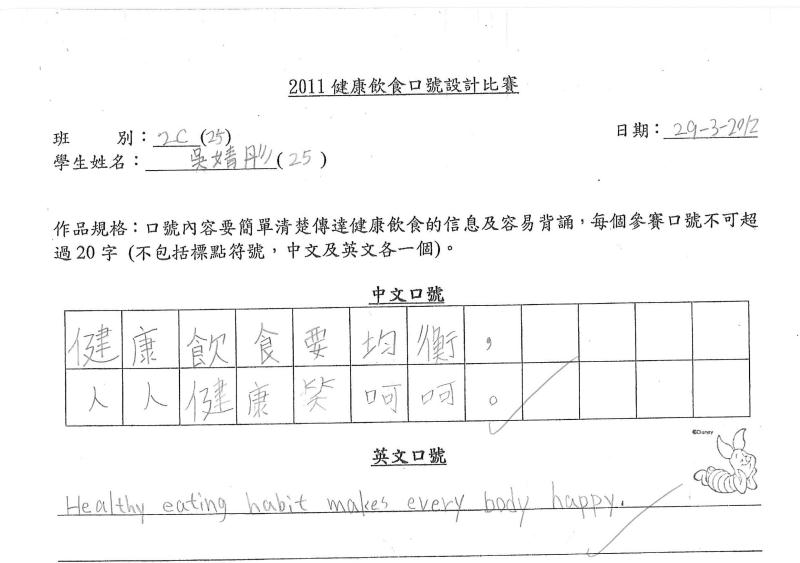 2011 健康飲食口號設計比賽
班 別：2C (25)
日期：29-3-2012
學生姓名：吳婧彤 (25)
作品規格：口號內容要簡單清楚傳達健康飲食的信息及容易背誦，每個參賽口號不可超
過 20 字 (不包括標點符號，中文及英文各一個)。
中文口號
健康飲食要均衡，
人人健康笑呵呵。
英文口號
©Disney
Healthy eating habit makes every body happy.